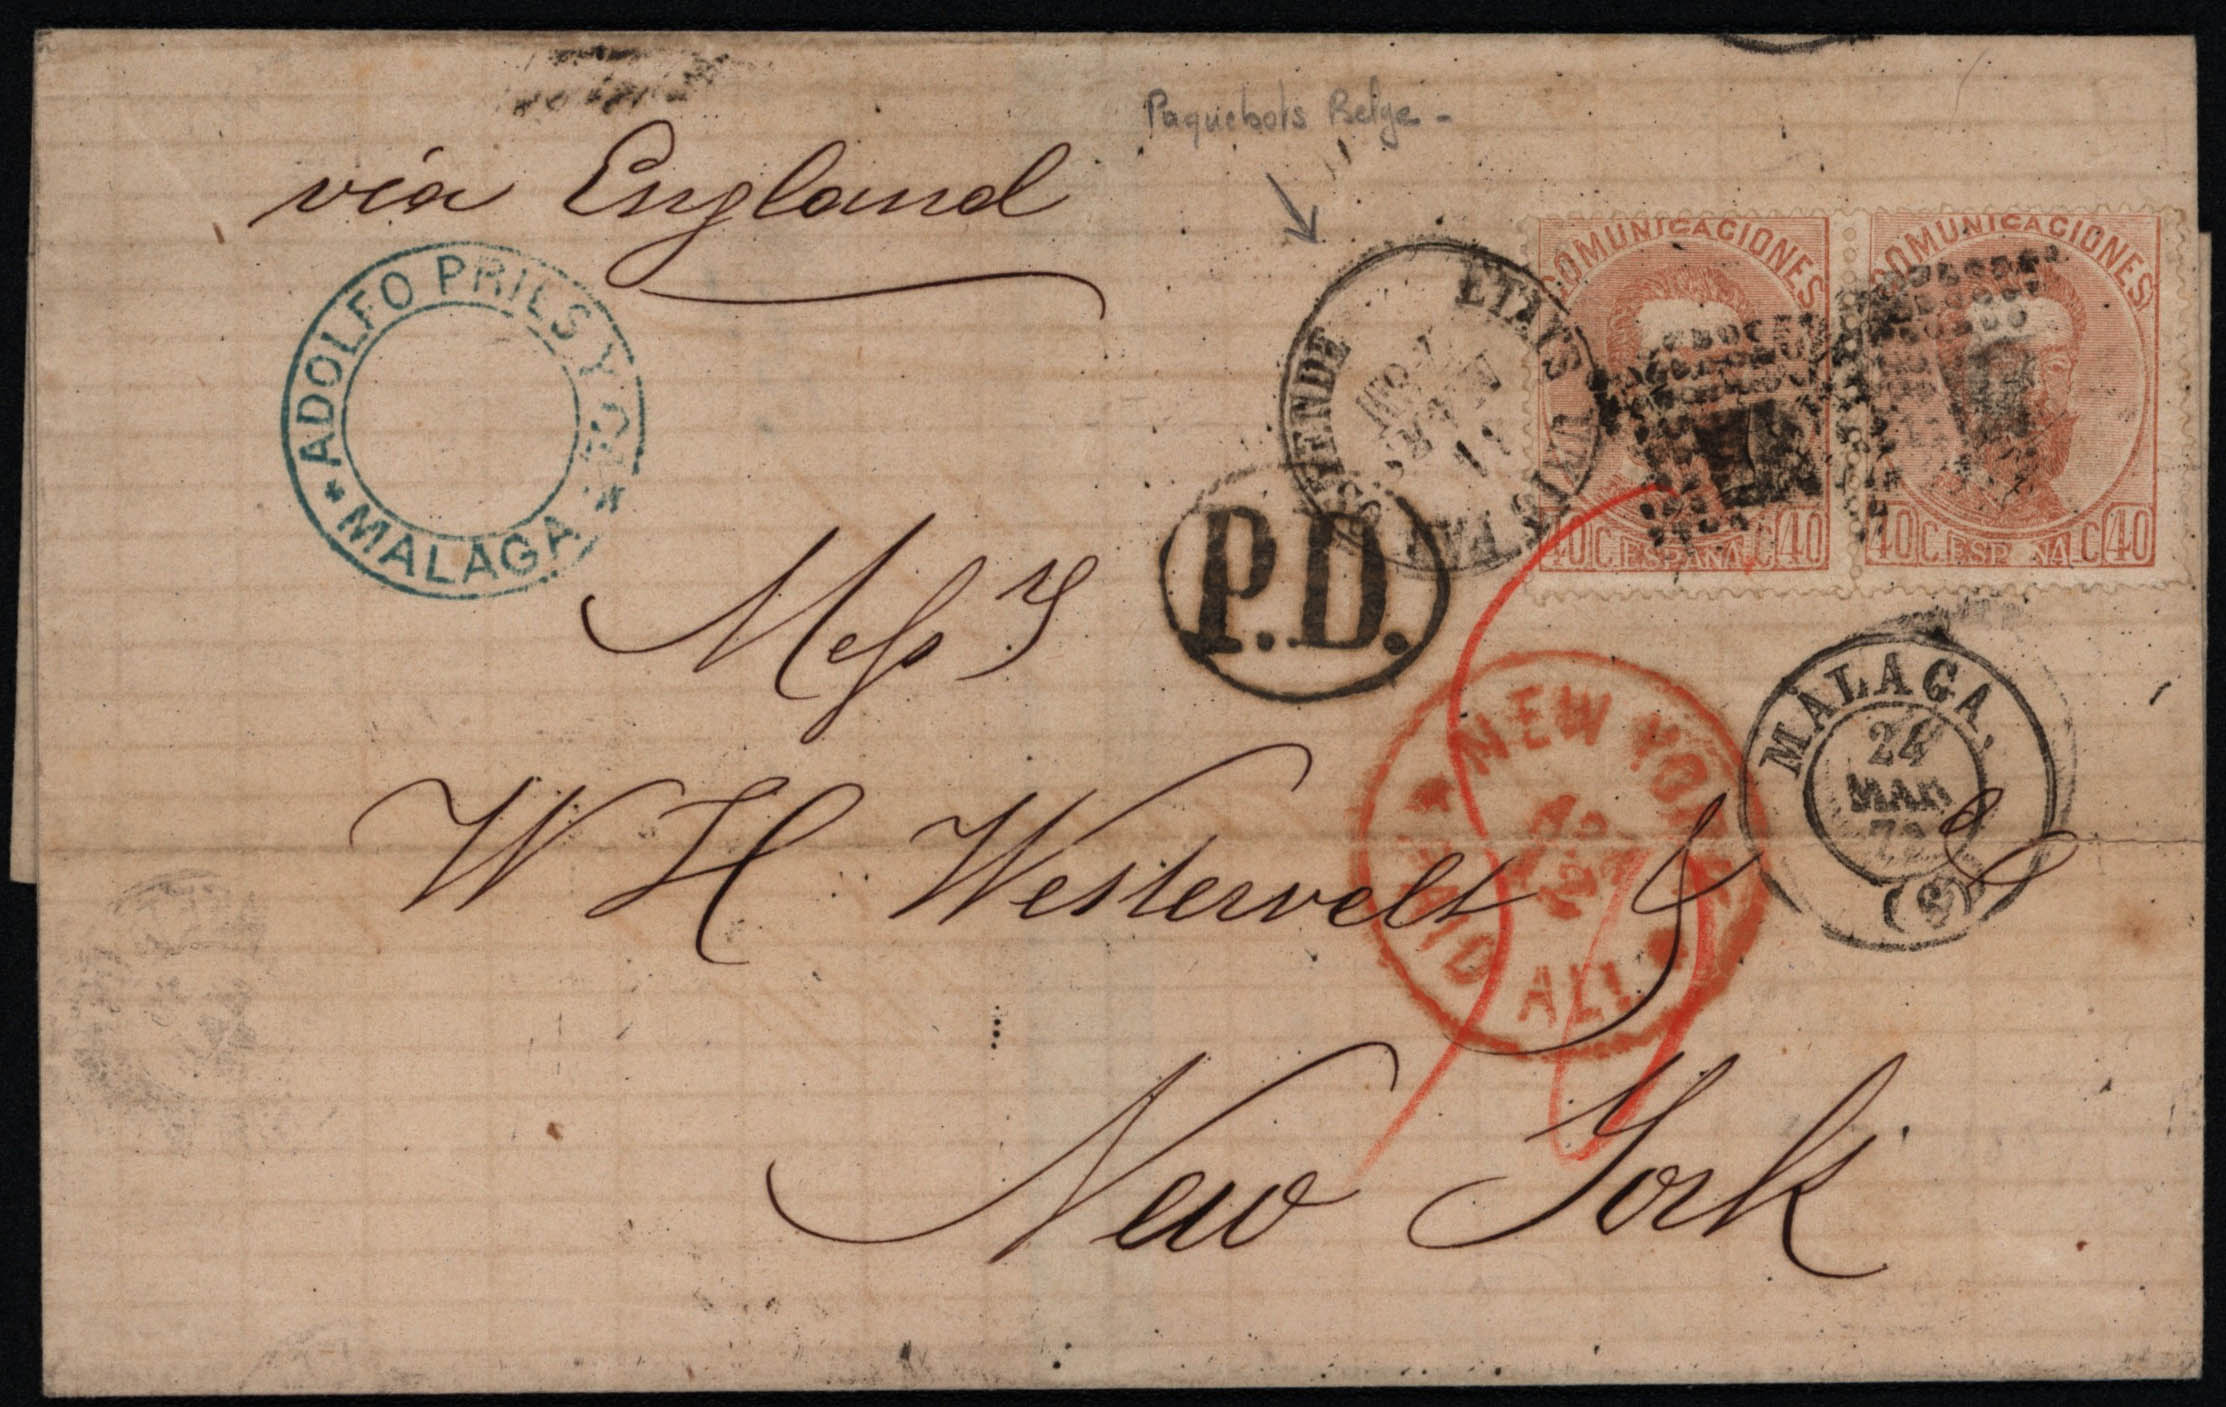 Paquebots Belge -
via England
ADOLFO PRIES Y CA
* MALAGA *
OSTENDE
ETATS UNIS
P.D.
COMUNICACIONES
40 C. ESPAÑA C. 40
COMUNICACIONES
40 C. ESPAÑA C. 40
MALAGA.
24
MAR
73
NEW YORK
PAID ALL
Mess rs
W H Westervelt & Co
New York